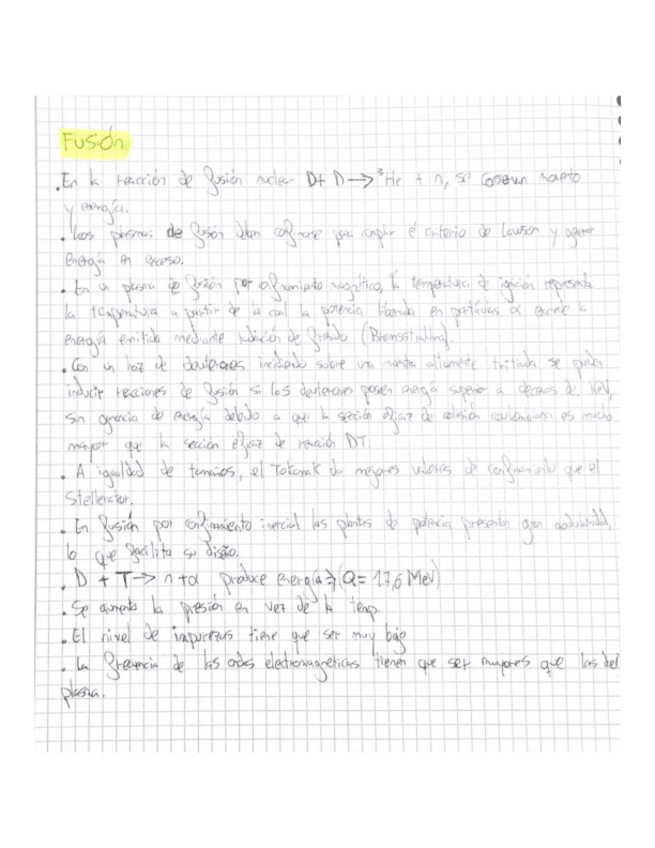 Fusión
. En la reacción de fusión nuclear D + D → ³He + n, se conservan momento
y energía.
. Los plasmas de fusión deben confinarse para cumplir el criterio de Lawson y generar
energía en exceso.
. En un plasma de fusión por confinamiento magnético, la temperatura de ignición representa
la temperatura a partir de la cual la potencia liberada en partículas α excede la
energía emitida mediante radiación de frenado (Bremsstrahlung)
. Con un haz de deuterones incidiendo sobre una muestra altamente tritiada se pueden
inducir reacciones de fusión si los deuterones poseen energía superior a decenas de KeV,
sin ganancia de energía debido a que la sección eficaz de colisión coulombiana es mucho
mayor que la sección eficaz de reacción DT.
. A igualdad de tamaños, el Tokamak da mejores valores de confinamiento que el
Stellerator.
. En fusión por confinamiento inercial las plantas de potencia presentan gran modularidad,
lo que facilita su diseño.
. D + T → n + α produce energía ⇒ (Q = 17,6 MeV)
. Se aumenta la presión en vez de la temp.
. El nivel de impurezas tiene que ser muy bajo
. La frecuencia de las ondas electromagnéticas tienen que ser mayores que las del
plasma.